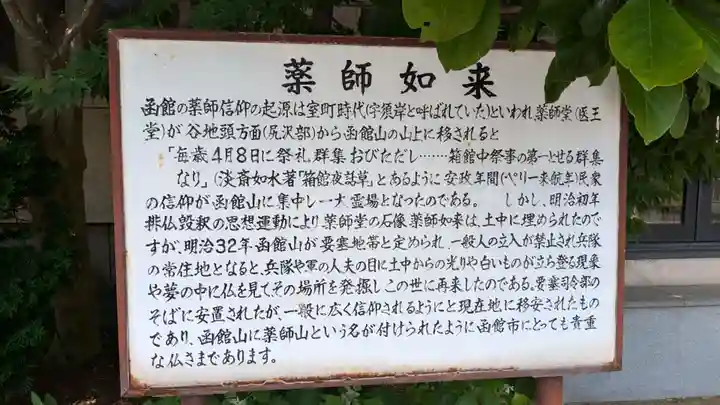 薬師如来
函館の薬師信仰の起源は室町時代(宇須岸と呼ばれていた)といわれ、薬師堂(医王
堂)が谷地頭方面(尻沢部)から函館山の山上に移されると
「毎歳4月8日に祭礼群集おびただし……箱館中祭事の第一とせる群集
なり」(淡斎如水著「箱館夜話草」とあるように安政年間(ペリー来航年)民衆
の信仰が函館山に集中し一大霊場となったのである。 しかし、明治初年
排仏毀釈の思想運動により薬師堂の石像薬師如来は、土中に埋められたので
すが、明治32年函館山が要塞地帯と定められ、一般人の立入が禁止され兵隊
の常住地となると、兵隊や軍の人夫の目に土中からの光りや白いものが立ち登る現象
や夢の中に仏を見て、その場所を発掘しこの世に再来したのである。要塞司令部の
そばに安置されたが、一般に広く信仰されるようにと現在地に移安されたもの
であり、函館山に薬師山という名が付けられたように函館市にとっても貴重
な仏さまであります。